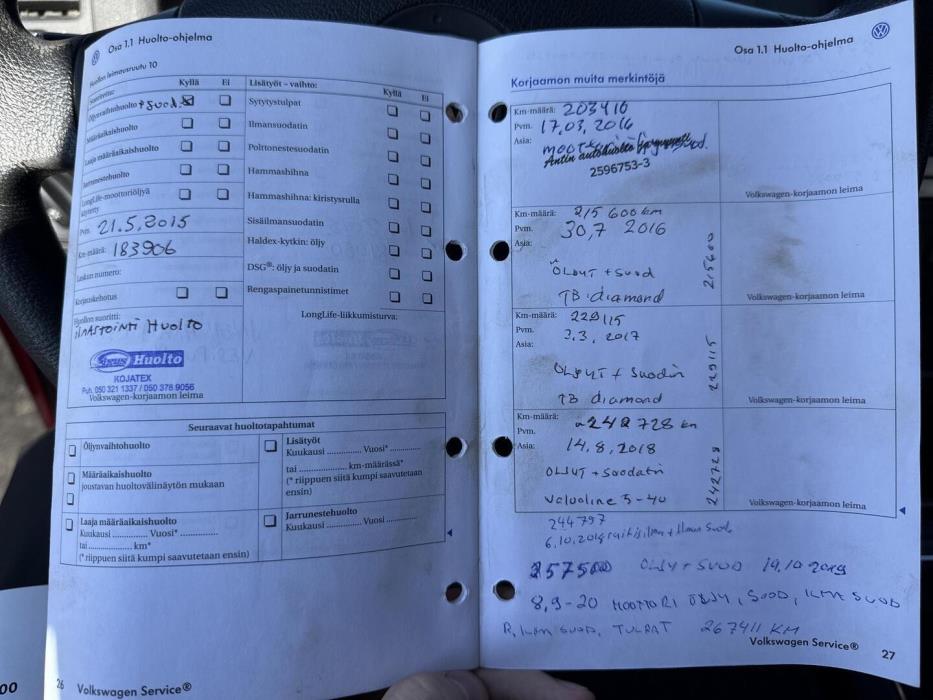 Osa 1.1 Huolto-ohjelma
Huollon leimausruutu 10
Suoritettu: Kyllä Ei
Öljynvaihtohuolto + suod.
Määräaikaishuolto
Laaja määräaikaishuolto
Jarrunestehuolto
LongLife-moottoriöljyä
käytetty
Pvm. 21.5.2015
Km-määrä: 183906
Laskun numero:
Korjauskehotus
Huollon suoritti:
ILMASTOINTI HUOLTO
Huolto
KOJATEX
Puh. 050 321 1337 / 050 378 9056
Volkswagen-korjaamon leima
Lisätyöt – vaihto: Kyllä Ei
Sytytystulpat
Ilmansuodatin
Polttonestesuodatin
Hammashihna
Hammashihna: kiristysrulla
Sisäilmansuodatin
Haldex-kytkin: öljy
DSG®: öljy ja suodatin
Rengaspainetunnistimet
LongLife-liikkumisturva:
Seuraavat huoltotapahtumat
Öljynvaihtohuolto
Määräaikaishuolto
joustavan huoltovälinäytön mukaan
Laaja määräaikaishuolto
Kuukausi .............. Vuosi* ..............
tai .............. km*
(* riippuen siitä kumpi saavutetaan ensin)
Lisätyöt
Kuukausi .............. Vuosi* ..............
tai .............. km-määrässä*
(* riippuen siitä kumpi saavutetaan
ensin)
Jarrunestehuolto
Kuukausi .............. Vuosi ..............
26 Volkswagen Service®
Osa 1.1 Huolto-ohjelma
Korjaamon muita merkintöjä
Km-määrä: 203410
Pvm. 17.03.2016
Asia:
Antin autohuolto
2596753-3
Volkswagen-korjaamon leima
Km-määrä: 215 600 km
Pvm. 30.7 2016
Asia:
ÖLJYT + suod
TB diamond
215600
Volkswagen-korjaamon leima
Km-määrä: 229115
Pvm. 3.3.2017
Asia:
ÖLJYT + Suodin
TB diamond
229115
Volkswagen-korjaamon leima
Km-määrä: 242 728 km
Pvm.
Asia: 14.8.2018
ÖLJYT + Suodatin
Valvoline 5-40
242728
Volkswagen-korjaamon leima
244797
6.10.2018 raitisilma + ilman suod
257500 ÖLJY + SUOD 19.10 2019
8.9-20 MOOTTORI ÖLJY, SUOD, ILMA SUOD
R. ILMA SUOD, TULPAT 267411 KM
Volkswagen Service® 27